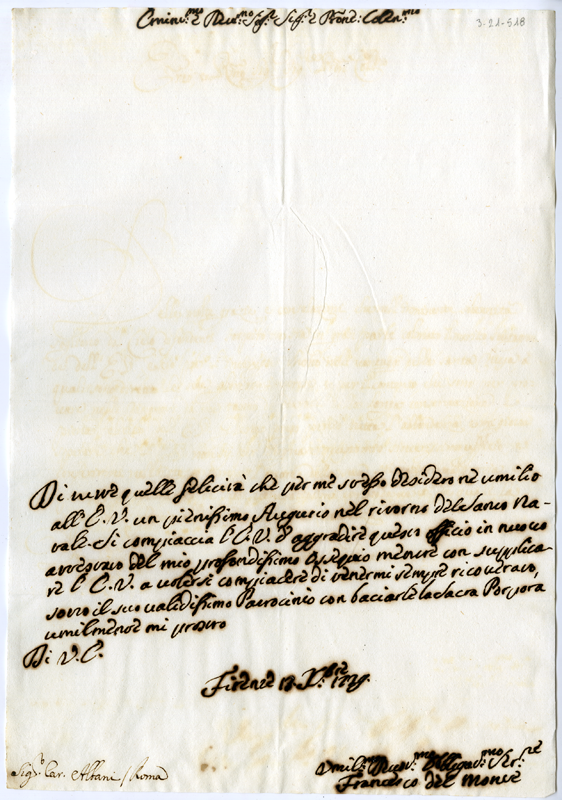 Emin:mo e Rev:mo Sig:r Sig:r e Pron: Colen:mo
3-21-518
Di tutte quelle felicità che per me stesso desidero ne umilio
all'E. V. un pienissimo Augurio nel ritorno del Santo Na-
tale. Si compiaccia l'E. V. d'aggradire questo officio in nuovo
attestato del mio profondissimo Ossequio mentre con supplica-
re l'E. V. a volersi compiacere di tenermi sempre ricoverato,
sotto il suo validissimo Patrocinio con baciarle la Sacra Porpora
umilmente mi protesto
Di V. E.
Firenze X.bre
Sig:r Car. Albani / Roma
Umil:mo Dev:mo Obblegat:mo Ser:re
Francesco del Monte